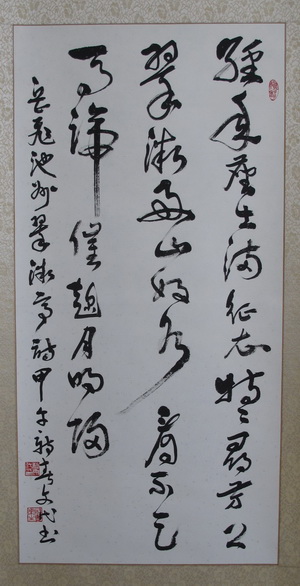 經年塵土滿征衣特特尋芳上
翠微好山好水看不足
馬蹄催趁月明歸
岳飛池州翠微亭詩甲午新春文代书